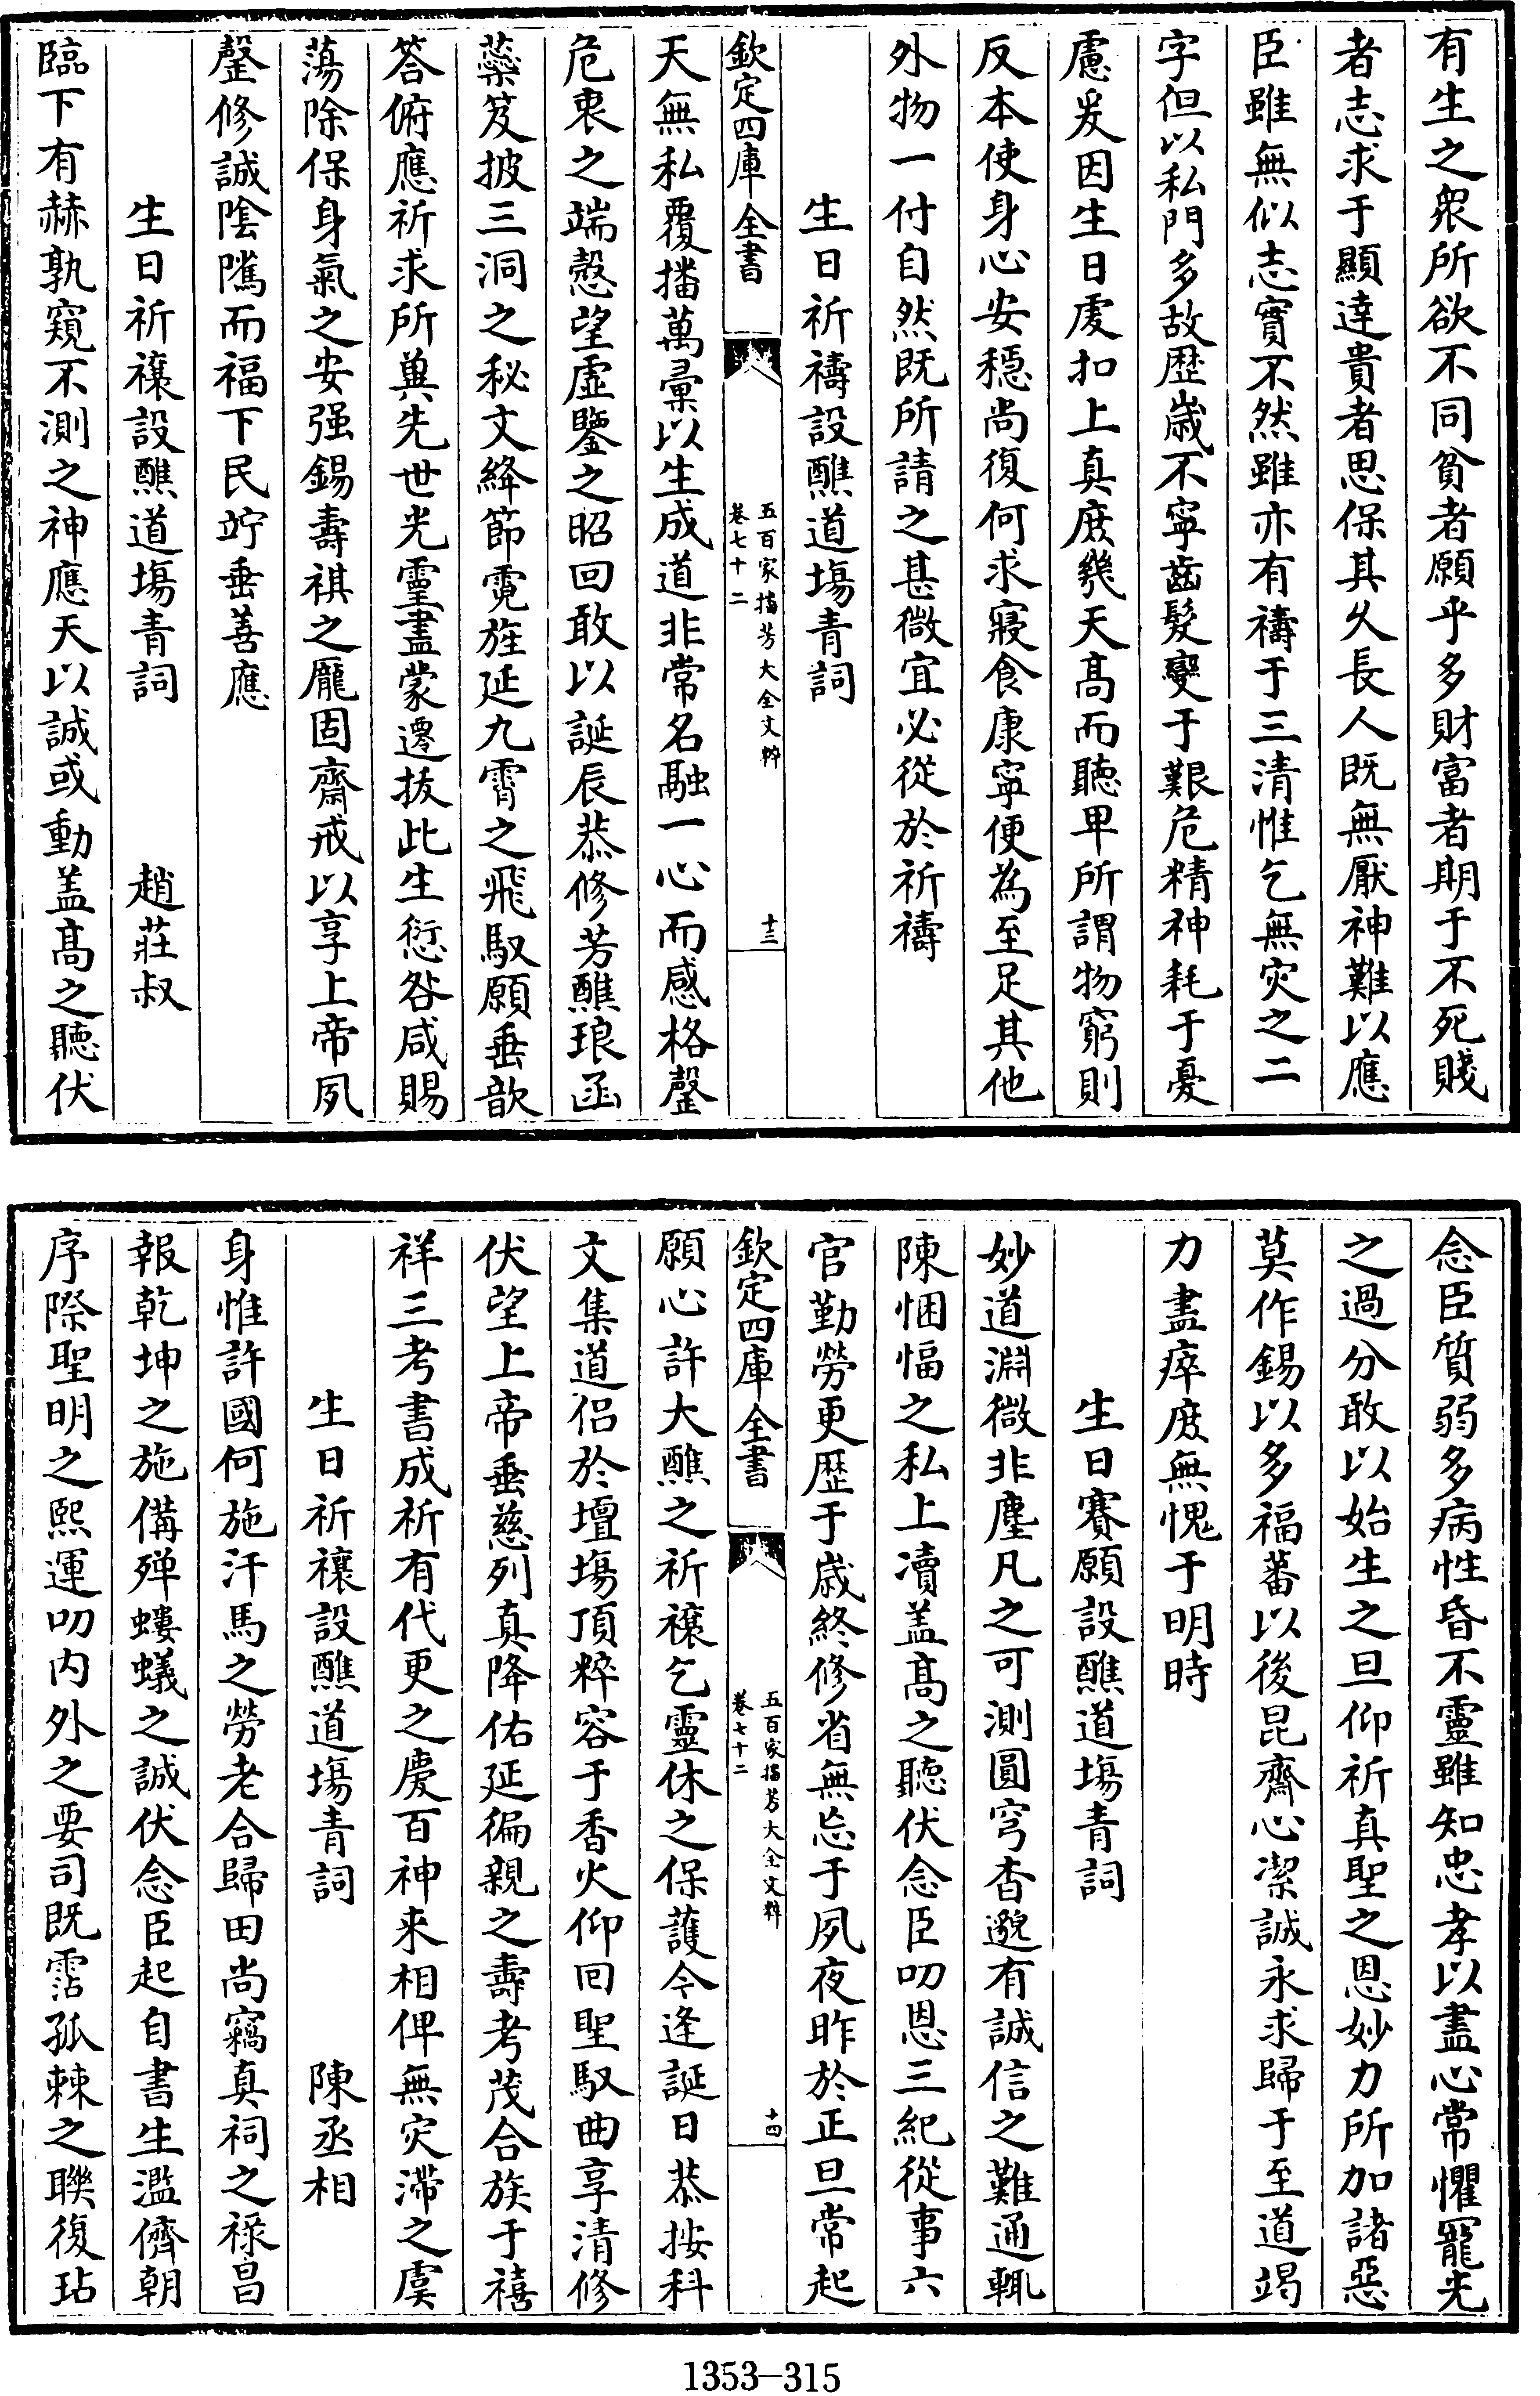 有生之衆所欲不同貧者願乎多財富者期于不死賤
者志求于顯達貴者思保其久長人既無厭神難以應
臣雖無似志實不然雖亦有禱于三清惟乞無灾之二
字但以私門多故歴嵗不寧齒髮變于艱危精神耗于憂
慮爰因生日虔扣上真庶幾天髙而聽卑所謂物窮則
反本使身心安穏尚復何求寢食康寧便為至足其他
外物一付自然既所請之甚微宜必從於祈禱
生日祈禱設醮道塲青詞
欽定四庫全書
五百家播芳大全文粹
卷七十二
十三
天無私覆播萬彚以生成道非常名融一心而感格罄
危衷之端慤望虚鑒之昭回敢以誕辰恭修芳醮琅函
蘂笈披三洞之秘文絳節霓旌延九霄之飛馭願垂歆
答俯應祈求所兾先世光靈盡蒙遷㧞此生愆咎咸賜
蕩除保身氣之安强錫壽祺之龎固齋戒以享上帝夙
罄修誠隂隲而福下民竚垂善應
生日祈禳設醮道塲青詞 趙莊叔
臨下有赫孰窺不測之神應天以誠或動盖髙之聽伏
念臣質弱多病性昏不靈雖知忠孝以盡心常懼寵光
之過分敢以始生之旦仰祈真聖之恩妙力所加諸惡
莫作錫以多福蕃以後昆齋心潔誠永求歸于至道竭
力盡瘁庶無愧于明時
生日賽願設醮道塲青詞
妙道淵微非塵凡之可測圓穹杳邈有誠信之難通輒
陳悃愊之私上凟盖髙之聽伏念臣叨恩三紀從事六
官勤勞更歴于嵗終修省無忘于夙夜昨於正旦常起
欽定四庫全書
五百家播芳大全文粹
卷七十二
十四
願心許大醮之祈禳乞靈休之保護今逢誕日恭按科
文集道侣於壇塲頂粹容于香火仰回聖馭曲享清修
伏望上帝垂慈列真降佑延徧親之壽考茂合族于禧
祥三考書成祈有代更之慶百神来相俾無灾滯之虞
生日祈禳設醮道塲青詞 陳丞相
身惟許國何施汗馬之勞老合歸田尚竊真祠之禄昌
報乾坤之施備殫螻蟻之誠伏念臣起自書生濫儕朝
序際聖明之熙運叨内外之要司既霑孤棘之聯復玷
1353-315